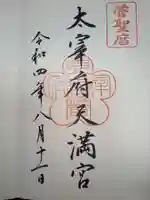 菅聖廟
太宰府天満宮
令和四年八月十二日